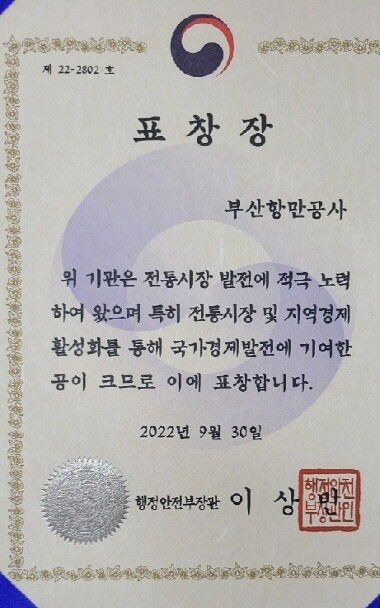 제 22-2802 호
표 창 장
부산항만공사
위 기관은 전통시장 발전에 적극 노력
하여 왔으며 특히 전통시장 및 지역경제
활성화를 통해 국가경제발전에 기여한
공이 크므로 이에 표창합니다.
2022년 9월 30일
행정안전부장관 이 상 민
행정안전
부장관인